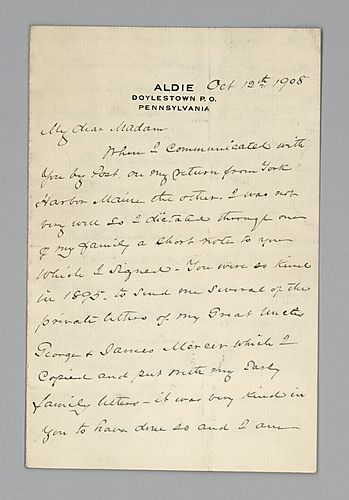 ALDIE Oct 12th 1908
DOYLESTOWN P. O.
PENNSYLVANIA
My dear Madam
When I Communicated with
You by Post on my return from York
Harbor Maine the other. I was not
very well so I dictated through one
of my family a short note to you
Which I signed - You were so kind
in 1895 - to send me several of the
private letters of my Great Uncles
George & James Mercer which I
Copied and put with my Early
family letters - it was very kind in
You to have done so and I am